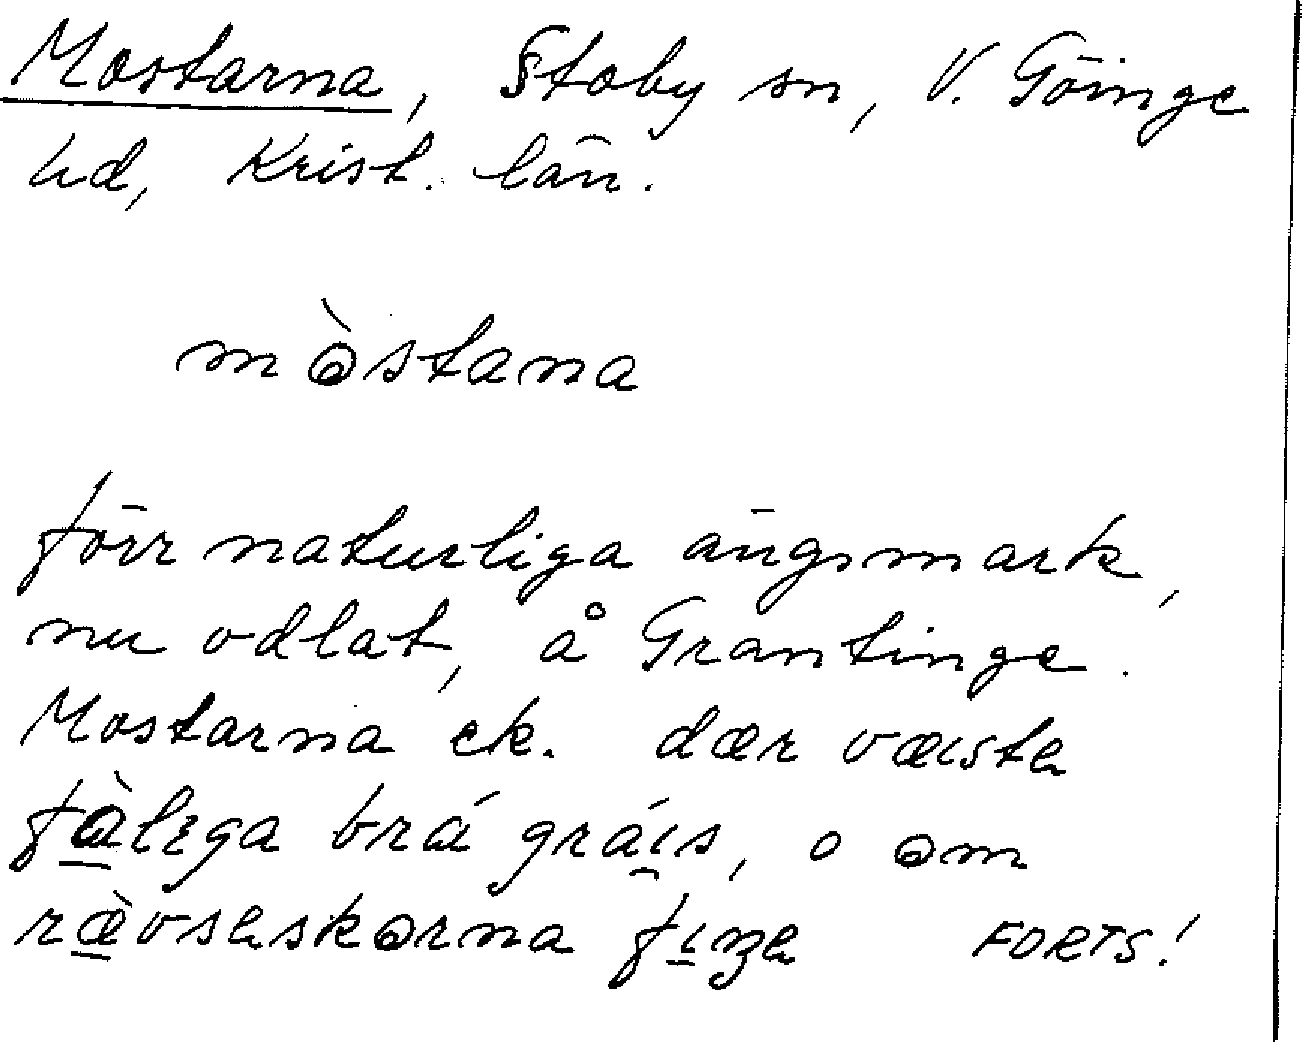 Mostarna, Stoby sn, V. Göinge
hd, Krist. län.
mòstana
förr naturliga ängsmark,
nu odlat, å Grantinge.
Mostarna ek. dær væıste
fɑ̱̀lega brá gráı̯s, o ɔm
ræ̱̀vseskɔrna fı̱ŋe FORTS!